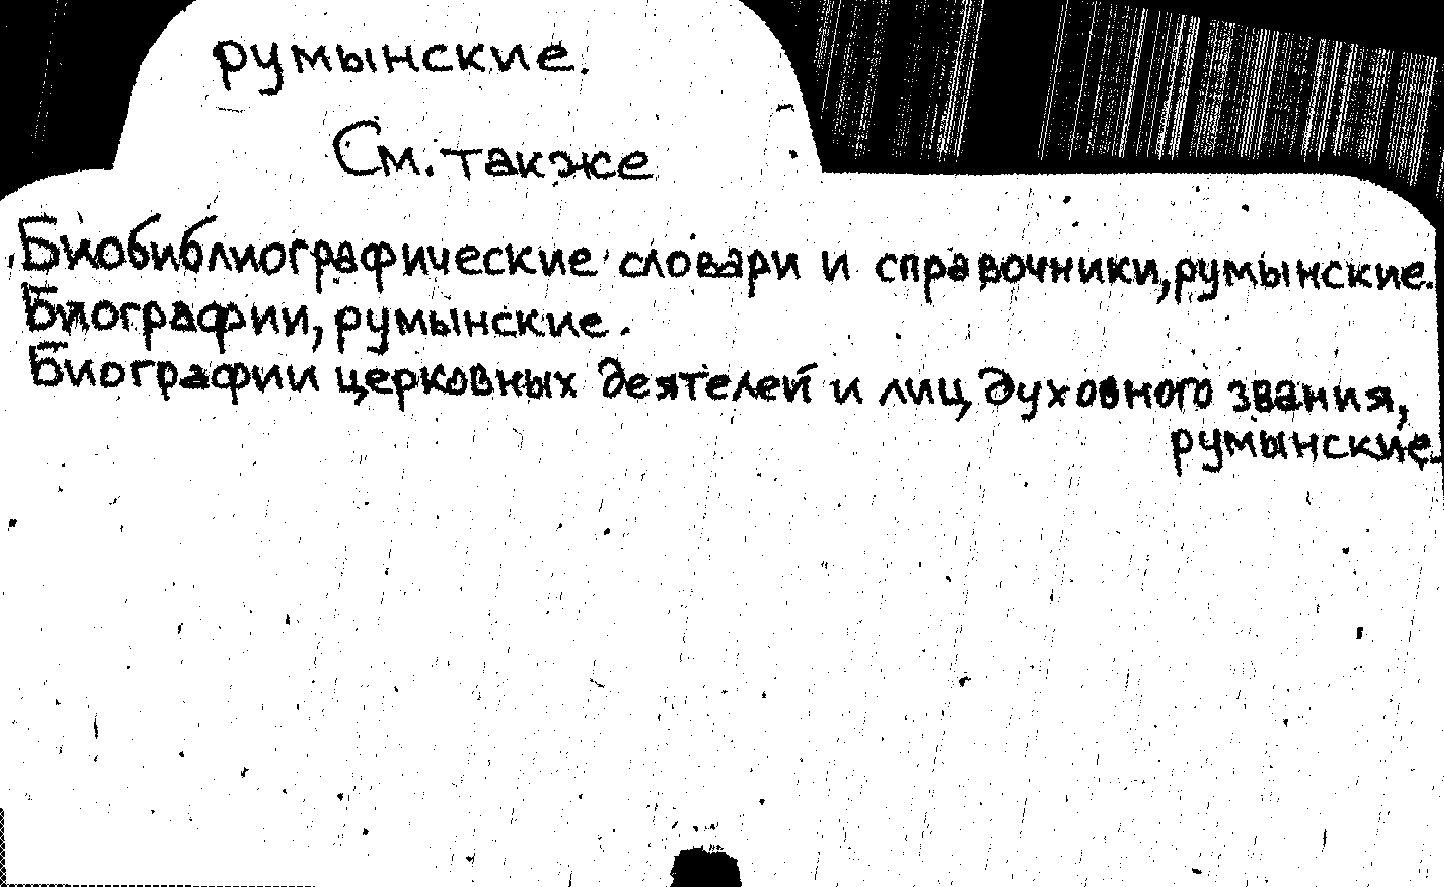 румынские.
См. также
Биобиблиографические словари и справочники, румынские.
Биографии, румынские.
Биографии церковных деятелей и лиц духовного звания,
румынские.